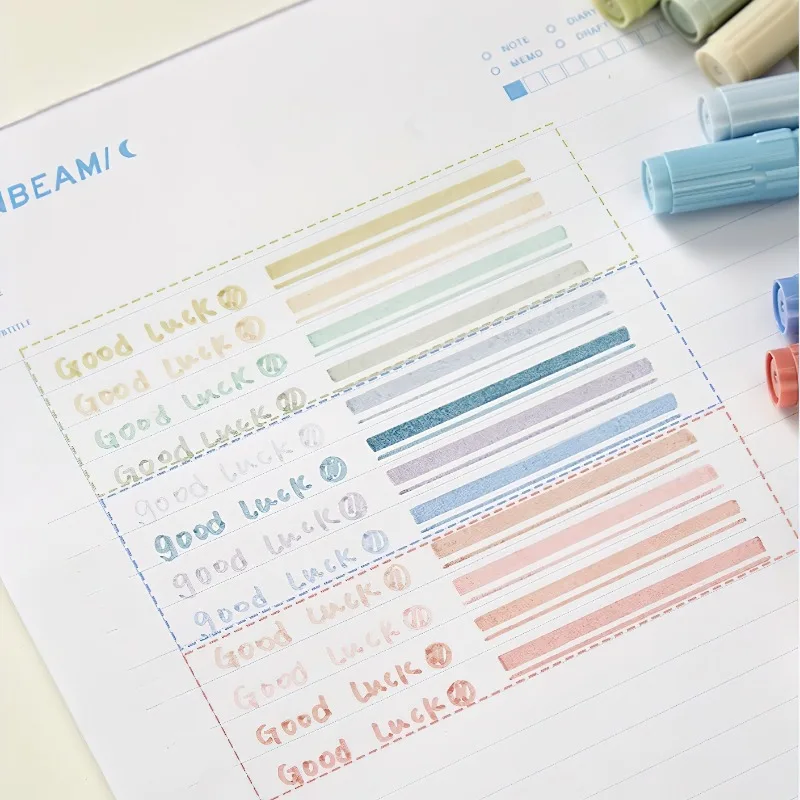 NOTE DIARY
MEMO DRAFT
NBEAM/
BTITLE
Good Luck
Good Luck
Good Luck
Good Luck
good Luck
good Luck
good Luck
good Luck
Good Luck
Good Luck
Good Luck
Good Luck